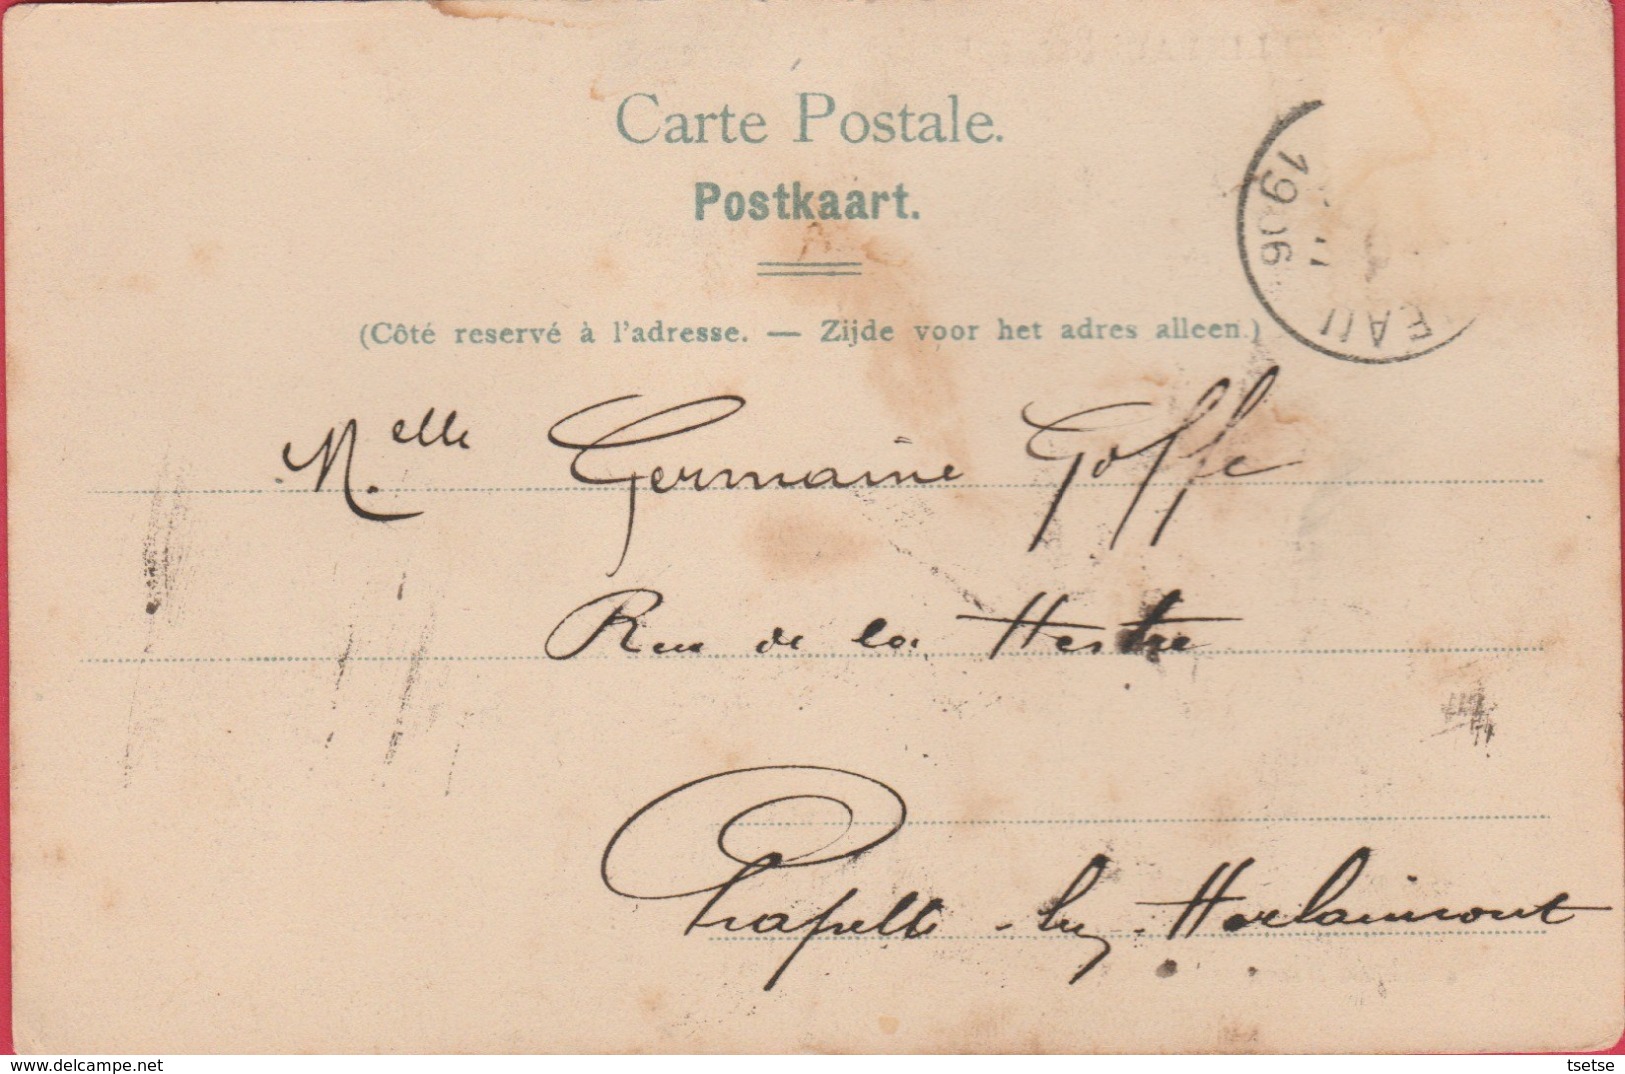 Carte Postale.
Postkaart.
1906
EAU
(Côté reservé à l'adresse. — Zijde voor het adres alleen.)
Melle Germaine Goffe
Rue de la Hestre
Chapelle-lez-Herlaimont
delcampe.net
tsetse